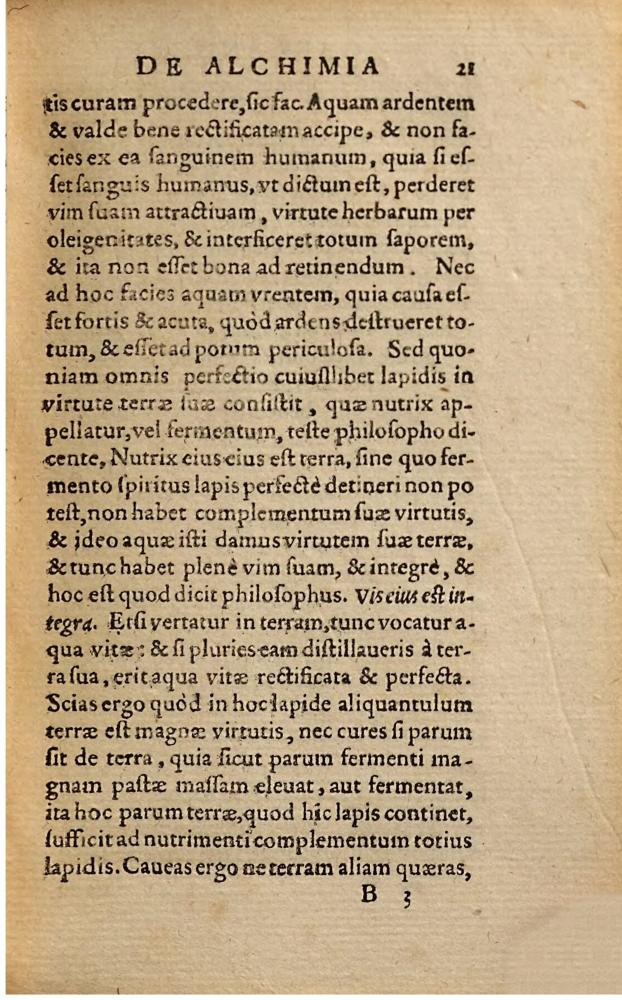 DE ALCHIMIA 21
tis curam procedere, sic fac. Aquam ardentem
& valde bene rectificatam accipe, & non fa-
cies ex ea sanguinem humanum, quia si es-
set sanguis humanus, vt dictum est, perderet
vim suam attractiuam, virtute herbarum per
oleigenitates, & interficeret totum saporem,
& ita non esset bona ad retinendum. Nec
ad hoc facies aquam vrentem, quia causa es-
set fortis & acuta, quòd ardens destrueret to-
tum, & esset ad potum periculosa. Sed quo-
niam omnis perfectio cuiusllibet lapidis in
virtute terræ suæ consistit, quæ nutrix ap-
pellatur, vel fermentum, teste philosopho di-
cente, Nutrix eius eius est terra, sine quo fer-
mento spiritus lapis perfectè detineri non po
test, non habet complementum suæ virtutis,
& ideo aquæ isti damus virtutem suæ terræ,
& tunc habet plenè vim suam, & integrè, &
hoc est quod dicit philosophus. Vis eius est in-
tegra. Etsi vertatur in terram, tunc vocatur a-
qua vitæ: & si pluries eam distillaueris à ter-
ra sua, erit aqua vitæ rectificata & perfecta.
Scias ergo quòd in hoc lapide aliquantulum
terræ est magnæ virtutis, nec cures si parum
sit de terra, quia sicut parum fermenti ma-
gnam pastæ massam eleuat, aut fermentat,
ita hoc parum terræ, quod hic lapis continet,
sufficit ad nutrimenti complementum totius
lapidis. Caueas ergo ne terram aliam quæras,
B 3